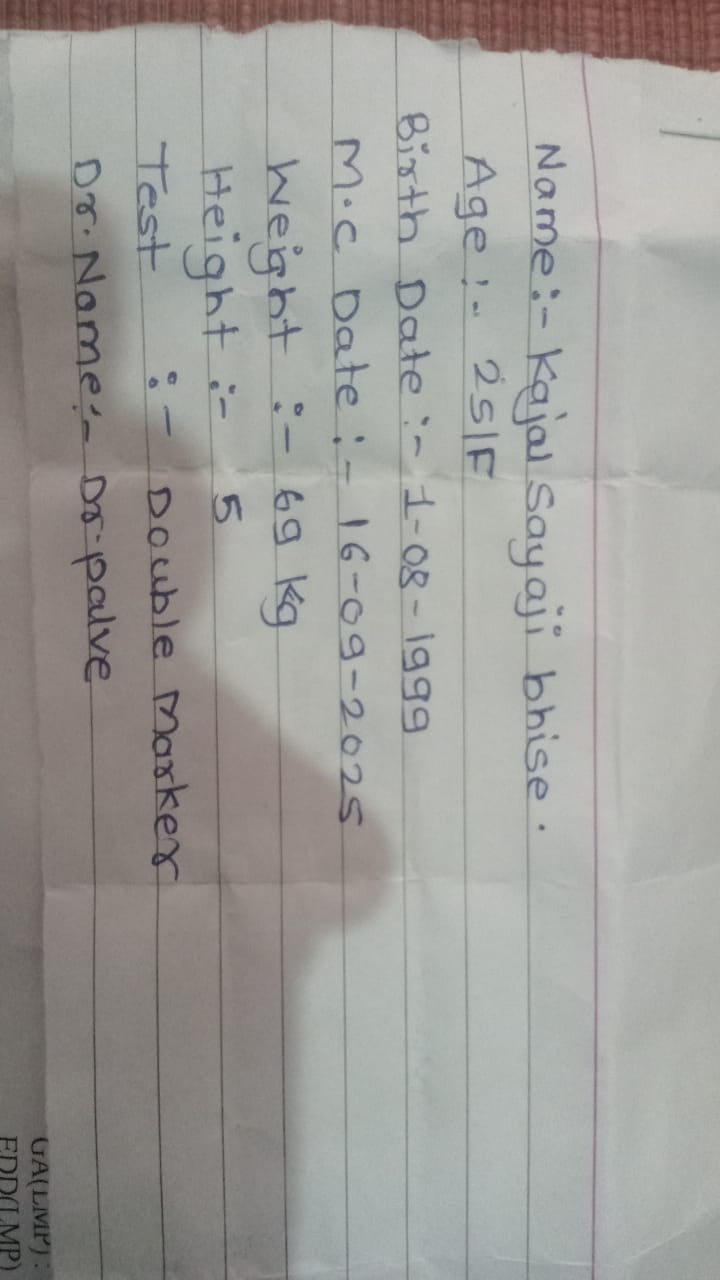 Name:- Kajal Sayaji bhise.
Age:- 25/F
Birth Date:- 1-08-1999
M.C Date:- 16-09-2025
Weight :- 69 kg
Height :- 5
Test :- Double Marker
Dr. Name:- Dr. palve
GA(LMP):
EDD(LMP)